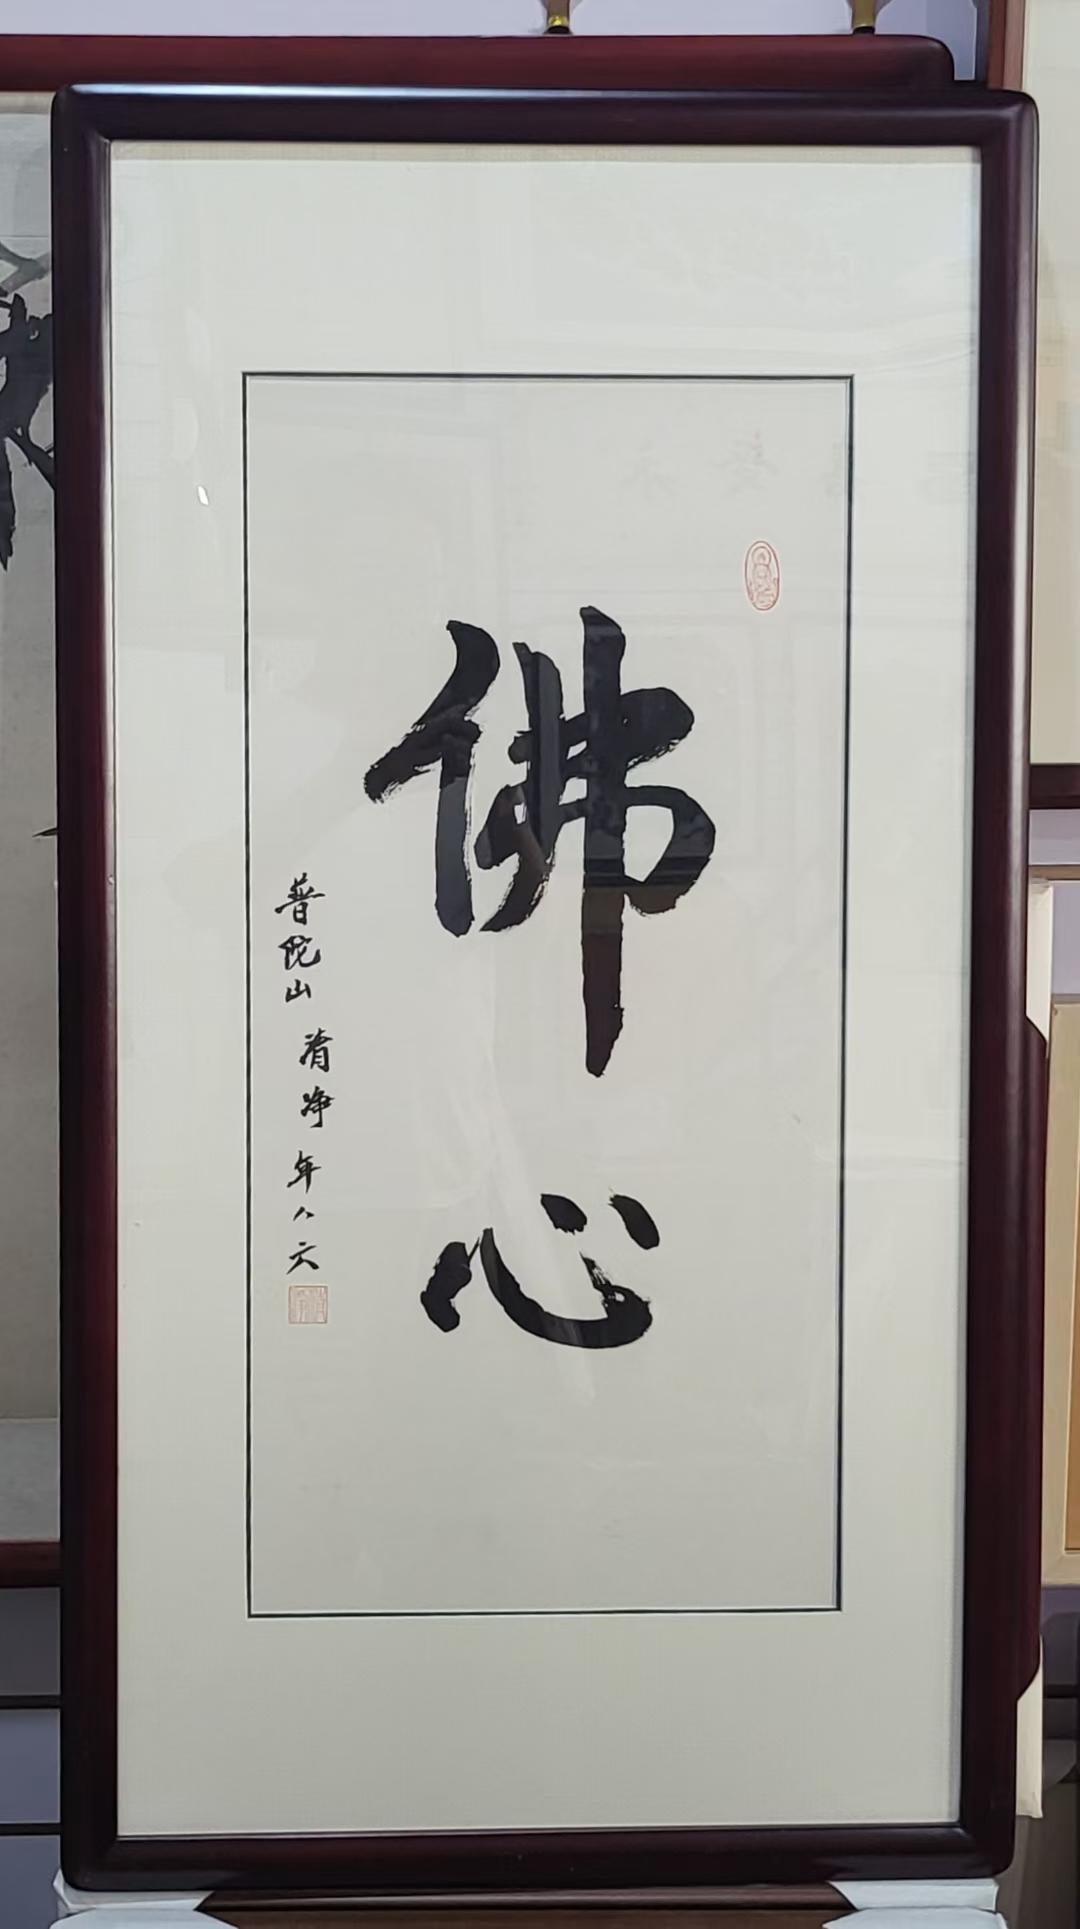 佛心
普陀山 清净 年八六